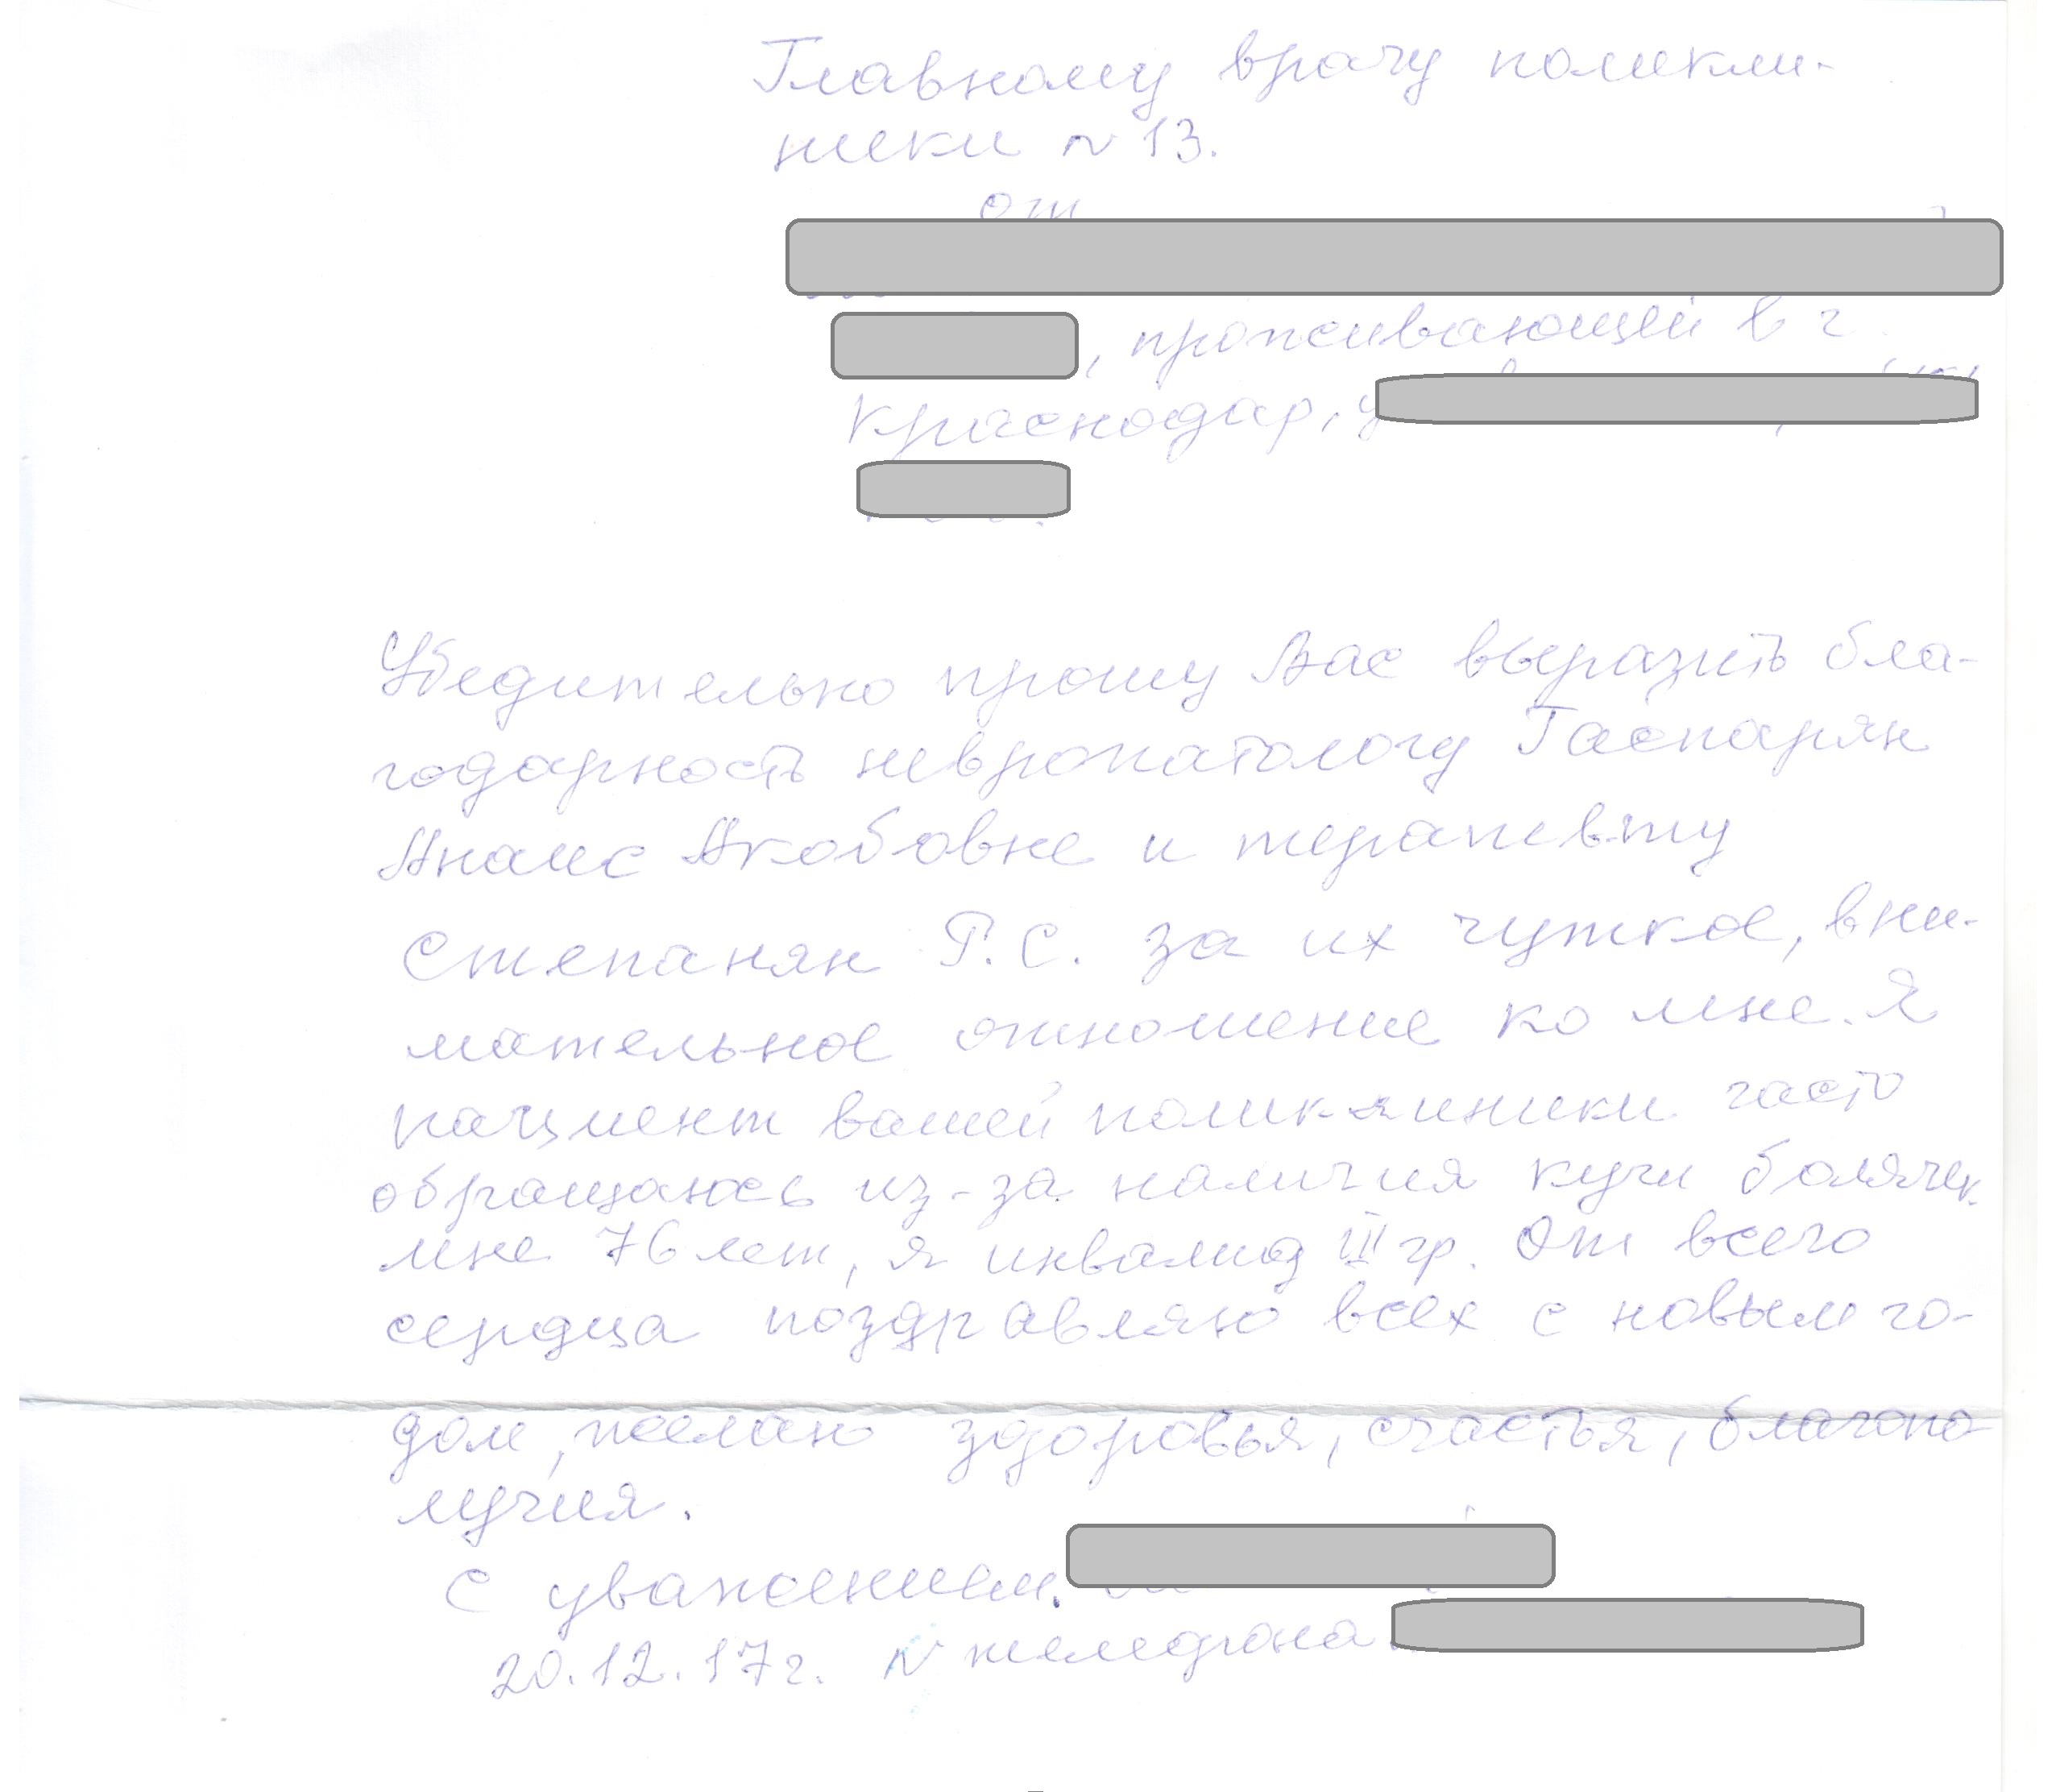 Главному врачу поликли-
ники N 13.
от
, проживающей в г.
Краснодар, у
Убедительно прошу Вас выразить бла-
годарность невропатологу Гаспарян
Анаис Акобовне и терапевту
Степанян Г.С. за их чуткое, вни-
мательное отношение ко мне. Я
пациент вашей поликлиники часто
обращаюсь из-за наличия кучи болячек.
мне 76 лет, я инвалид III гр. От всего
сердца поздравляю всех с новым го-
дом, желаю здоровья, счастья, благопо
лучия.
С уважением.
20.12.17г. N телефона